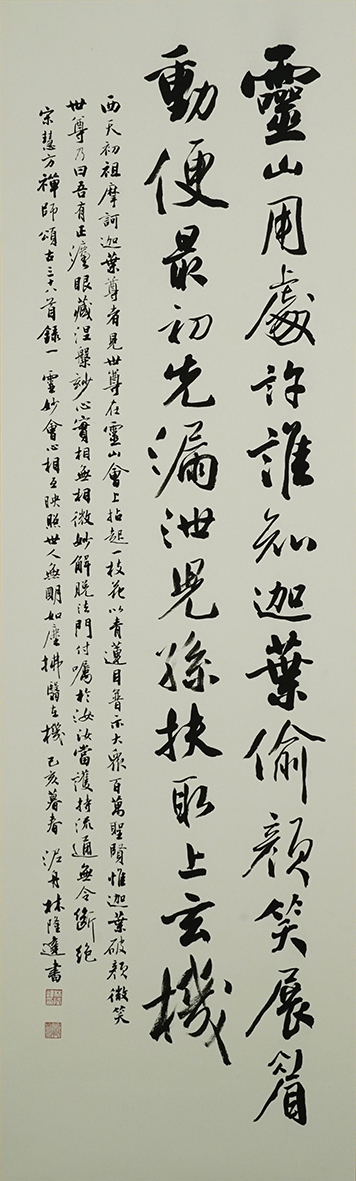 靈山用處許誰知迦葉偷顏笑展眉
動便最初先漏泄兒孫扶取上玄機
西天初祖摩訶迦葉尊者見世尊在靈山會上拈起一枝花以青蓮目普示大眾百萬聖賢惟迦葉破顏微笑
世尊乃曰吾有正法眼藏涅槃妙心實相無相微妙解脫法門付囑於汝汝當護持流通無令斷絕
宗慧方禪師頌古三十六首錄一 靈妙會心相互映照世人無明如塵拂翳在機 己亥暮春 泥丹林隆達書